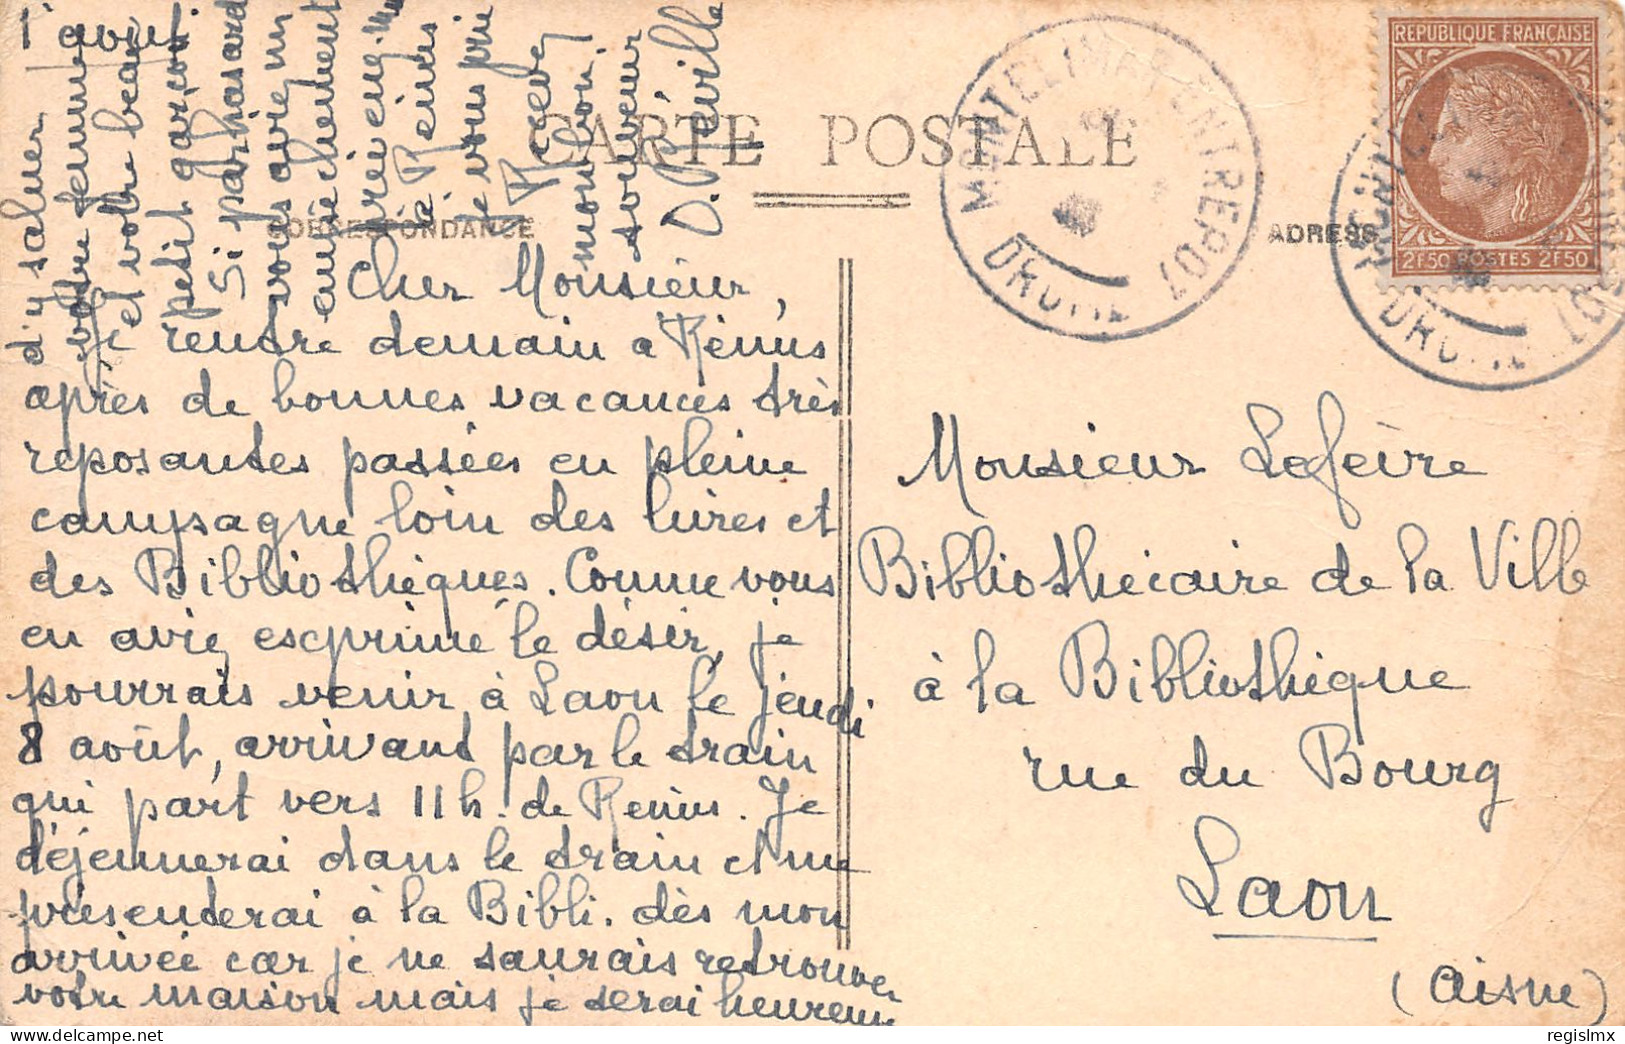 CARTE POSTALE
CORRESPONDANCE
ADRESSE
RÉPUBLIQUE FRANÇAISE
2F50 POSTES 2F50
MONTELIMAR ENTREPOT
DROME
Cher Monsieur,
Je rentre demain à Reims
après de bonnes vacances très
reposantes passées en pleine
campagne loin des livres et
des Bibliothèques. Comme vous
en aviez exprimé le désir, je
pourrais venir à Laon le jeudi
8 août, arrivant par le train
qui part vers 11h. de Reims. Je
déjeunerai dans le train et me
présenterai à la Bibli. dès mon
arrivée car je ne saurais retrouver
votre maison mais je serai heureux
d'y saluer
votre femme
et votre beau
petit garçon.
Si par hasard
vous aviez un
empêchement
prévenez-moi
à Reims
je vous prie
Recevez
mon bon
souvenir
1er août
Monsieur Lefèvre
Bibliothécaire de la Ville
à la Bibliothèque
rue du Bourg
Laon
(Aisne)
regislmx